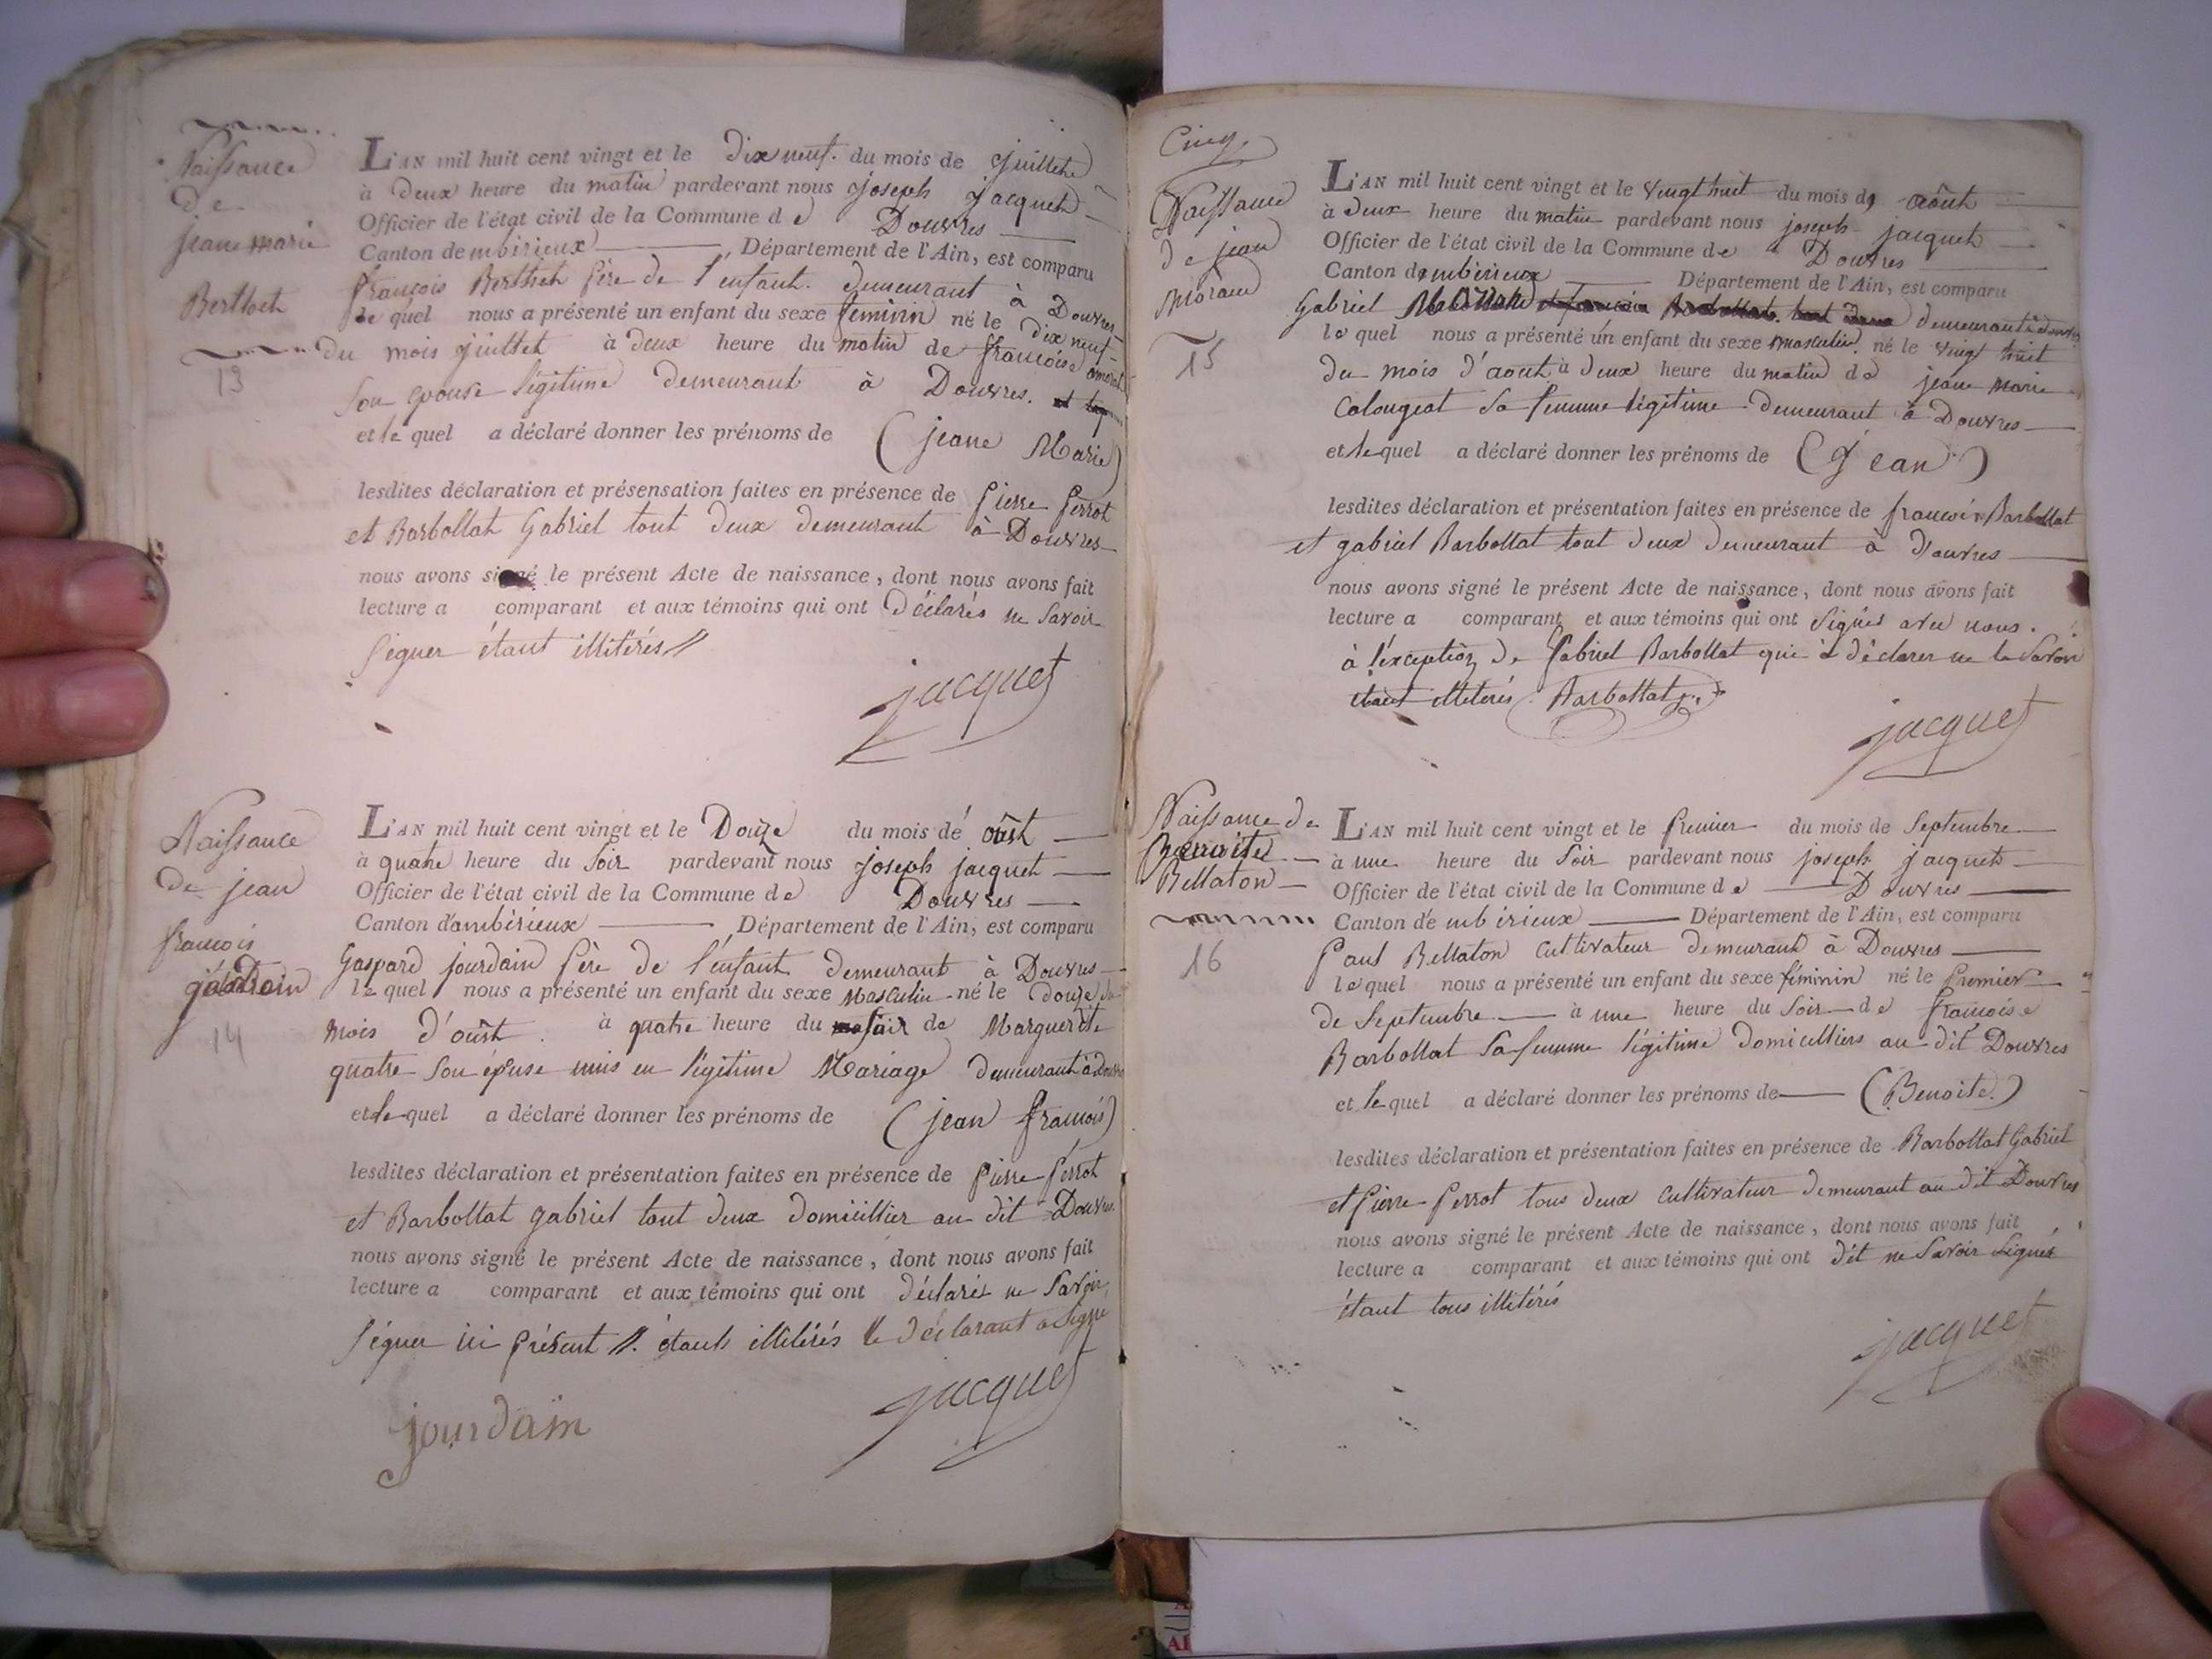 Naissance
de
jeane marie
Berthet
13
L'AN mil huit cent vingt et le dix neuf. du mois de juillet
à deux heure du matin pardevant nous joseph jacquet
Officier de l'état civil de la Commune de Douvres
Canton dembirieux Département de l'Ain, est comparu
françois Berthet père de l'enfant. demeurant à Douvres
le quel nous a présenté un enfant du sexe feminin né le dix neuf
du mois juillet à deux heure du matin de françoise
son epouse légitime demeurant à Douvres.
et le quel a déclaré donner les prénoms de (jeane Marie)
lesdites déclaration et présensation faites en présence de pierre perrot
et Barbollat Gabriel tout deux demeurant à Douvres
nous avons signé le présent Acte de naissance, dont nous avons fait
lecture a comparant et aux témoins qui ont déclarés ne savoir
signer étant illitérés //
jacquet
Naissance
de jean
françois
14
L'AN mil huit cent vingt et le Douze du mois de oûst
à quatre heure du soir pardevant nous joseph jacquet
Officier de l'état civil de la Commune de Douvres
Canton d'ambirieux Département de l'Ain, est comparu
Gaspard jourdain père de l'enfant demeurant à Douvres
le quel nous a présenté un enfant du sexe masculin né le douze du
mois d'oûst. à quatre heure du soir de Marguerite
quatre son épouse unis en légitime Mariage demeurant à
et le quel a déclaré donner les prénoms de (jean françois)
lesdites déclaration et présentation faites en présence de pierre perrot
et Barbollat gabriel tout deux domicillier au dit Douvres
nous avons signé le présent Acte de naissance, dont nous avons fait
lecture a comparant et aux témoins qui ont déclarés ne savoir
signer ici présent //. étants illitérés le déclarant a signe
jourdain
jacquet
Cinq
Naissance
de jean
morand
15
L'AN mil huit cent vingt et le vingt huit du mois de août
à deux heure du matin pardevant nous joseph jacquet
Officier de l'état civil de la Commune de Douvres
Canton dembirieux Département de l'Ain, est comparu
Gabriel demeurant à
le quel nous a présenté un enfant du sexe masculin. né le vingt huit
du mois d'août à deux heure du matin de jeane marie
Colougeat sa femme légitime demeurant à Douvres
et le quel a déclaré donner les prénoms de (Jean)
lesdites déclaration et présentation faites en présence de françois Barbollat
et gabriel Barbollat tout deux demeurant à Douvres
nous avons signé le présent Acte de naissance, dont nous avons fait
lecture a comparant et aux témoins qui ont signés avec nous.
à l'exception de Gabriel Barbollat qui à déclarer ne le savoir
étant illiterés Barbollat
jacquet
Naissance de
Benoite
Bellaton
16
L'AN mil huit cent vingt et le premier du mois de septembre
à une heure du soir pardevant nous joseph jacquet
Officier de l'état civil de la Commune de Douvres
Canton de mbirieux Département de l'Ain, est comparu
paul Bellaton cultivateur demeurant à Douvres
le quel nous a présenté un enfant du sexe féminin né le premier
de septembre à une heure du soir de françoise
Barbollat sa femme légitime domicilliers au dit Douvres
et le quel a déclaré donner les prénoms de (Benoite.)
lesdites déclaration et présentation faites en présence de Barbollat Gabriel
et pierre perrot tous deux cultivateur demeurant au dit Douvres
nous avons signé le présent Acte de naissance, dont nous avons fait
lecture a comparant et aux témoins qui ont dit ne savoir signer
étant tous illitérés
jacquet